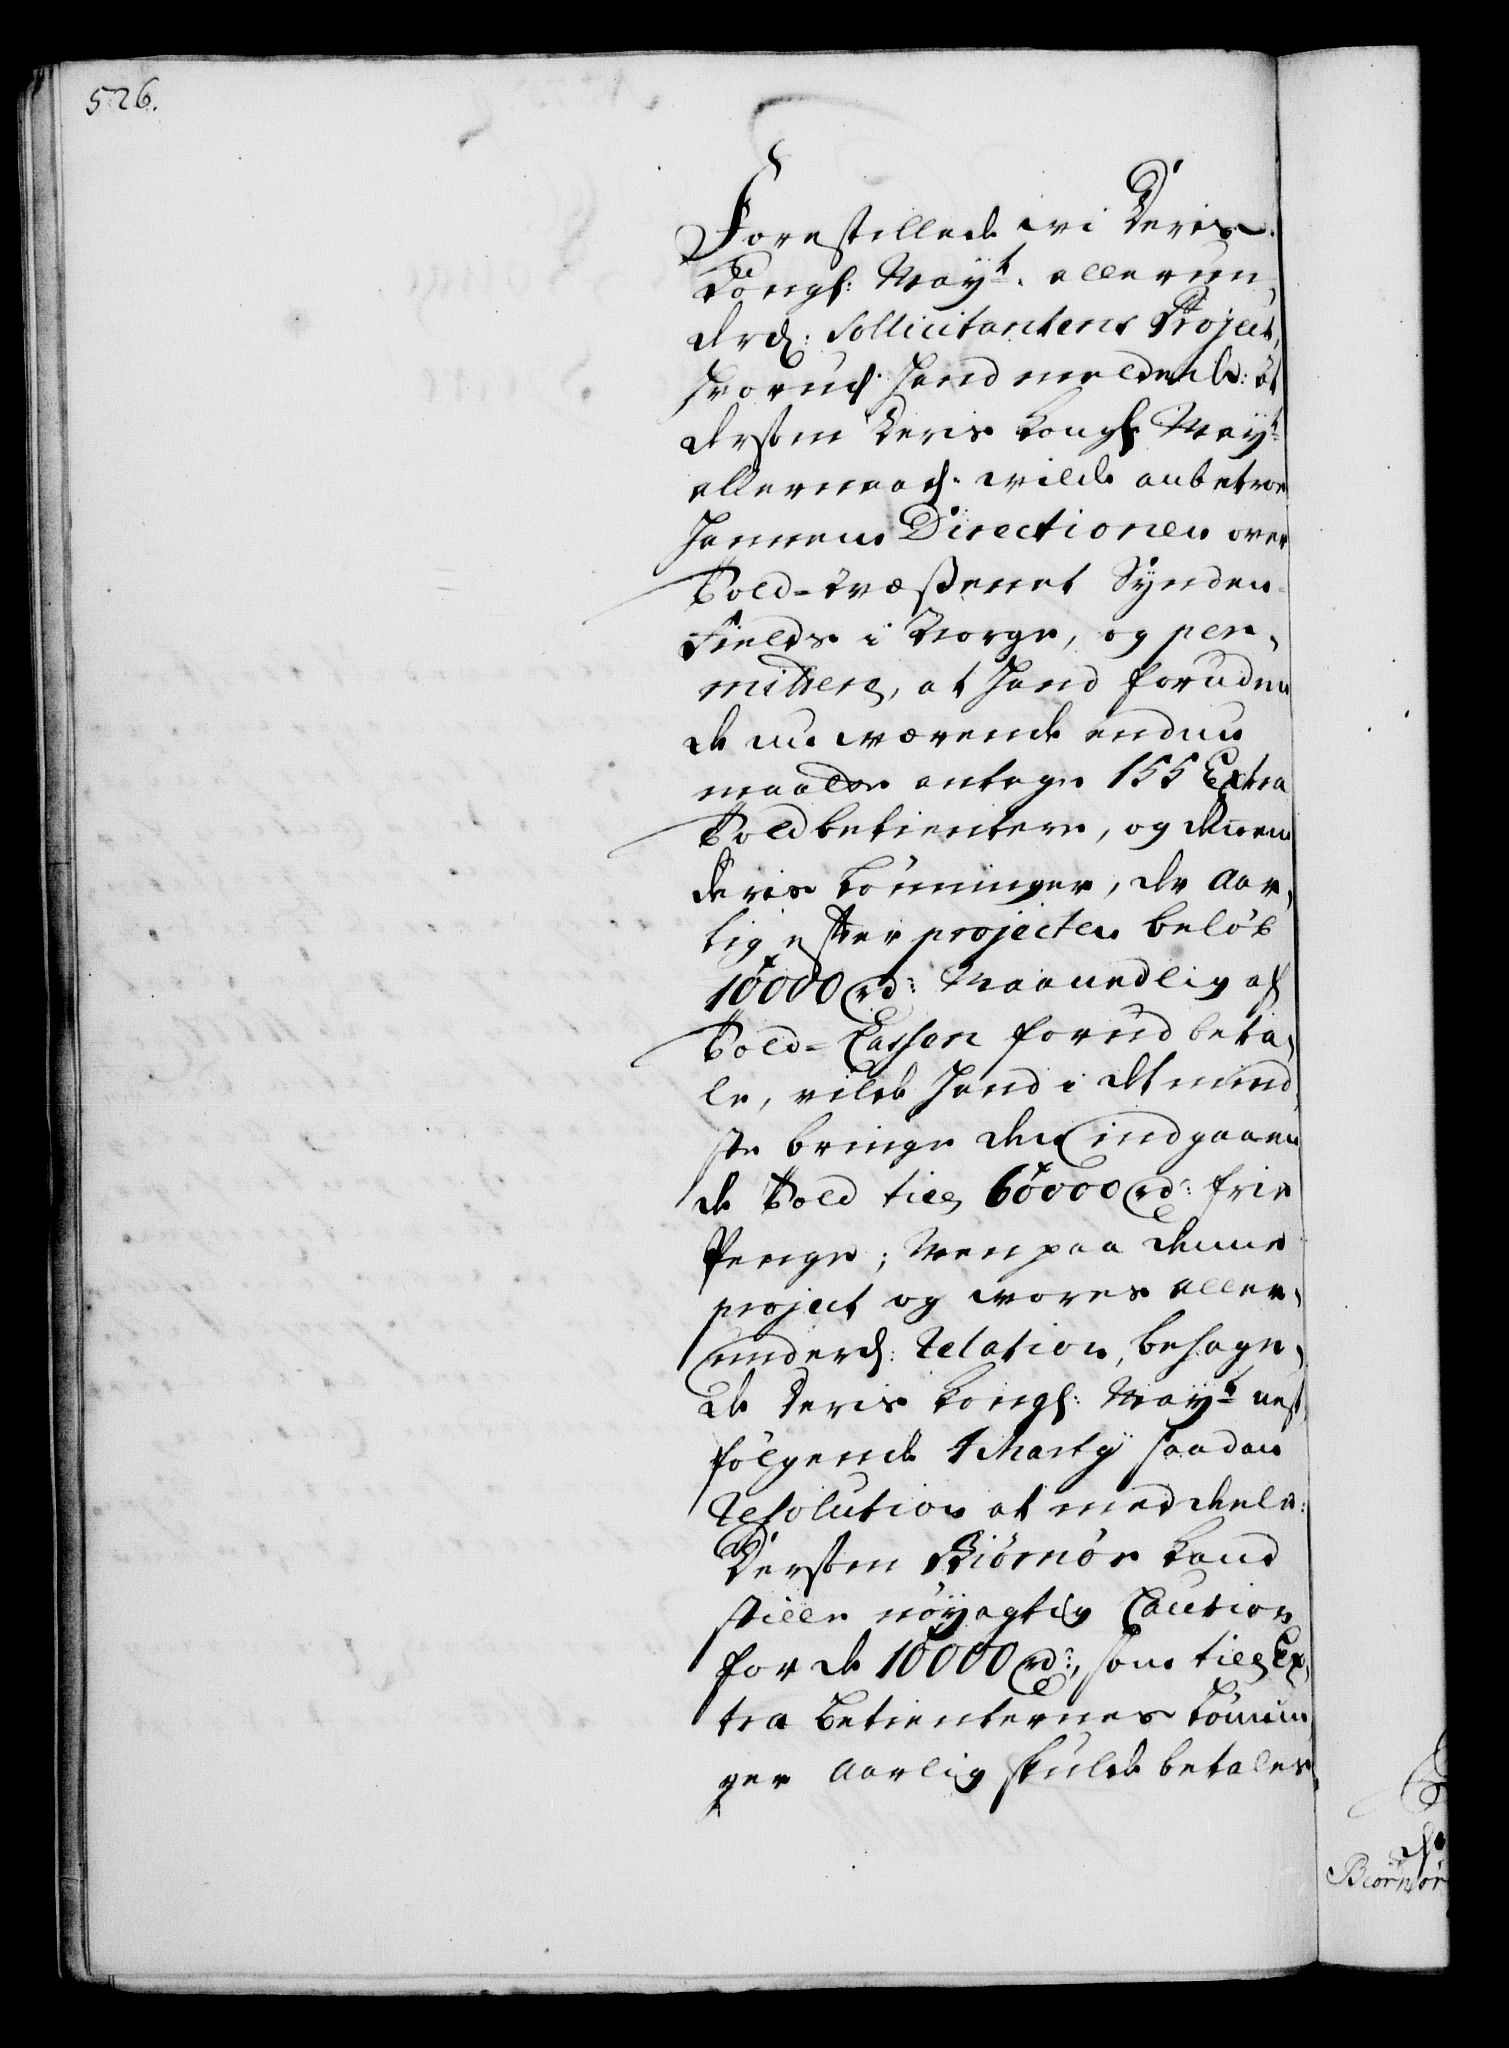 526.
Forestillede wi Deris
Kongl: Mayt. allerun,
derd: Sollicitantens Project,
hvorud. hand melder: at
dersom Deris Kongl: Mayt
allernaad. wilde anbetroe
hannem Directionen over
Told-Wæsenet Synden-
Fields i Norge, og per,
mittere, at hand foruden
de nu værende endnu
maatte antage 155 Extra
Toldbetientere, og dennem
deris Lønninger, der Aar,
lig efter projecten beløb
10000 rd: Maanedlig af
Told-Cassen forud beta,
le, vilde hand i det mind,
ste bringe den indgaaen
de Told till 60000 rd: frie
Penge; Men paa denne
project og wores aller,
underd: Relation, behage,
de Deris Kongl: Mayt nest,
følgende 1 Marty saadan
Resolution at meddeele:
Dersom Biørnør kand
stille nøyagtig Caution
for de 10000 rd:, som till Ex,
tra Betienternes Lønnin
ger Aarlig skulde betales
Biørnør